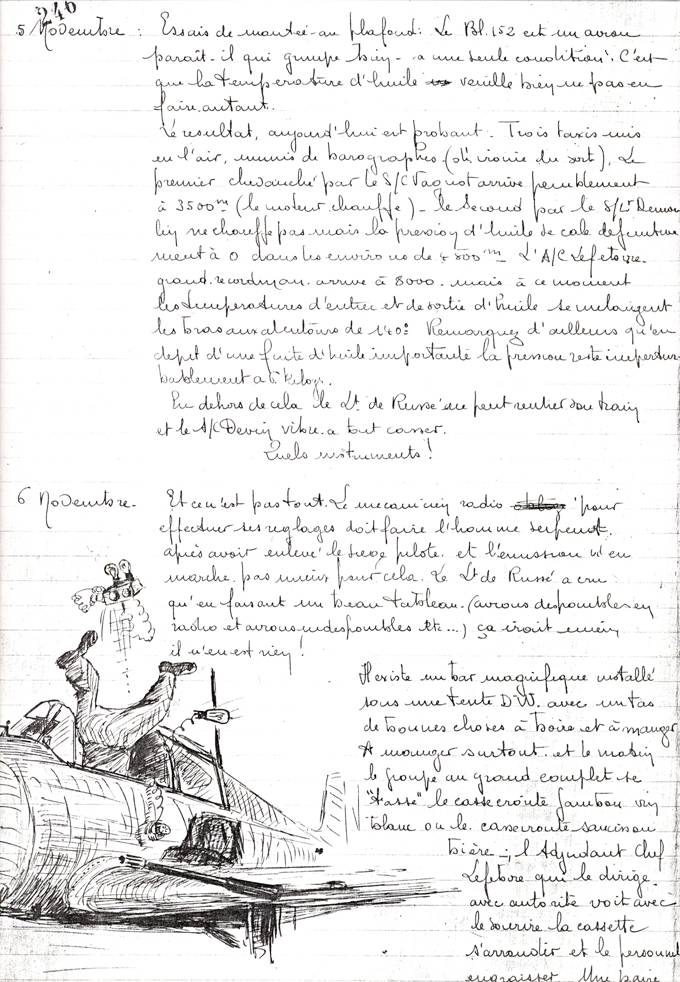 246
5 Novembre : Essais de montée au plafond : Le Bl. 152 est un avion
paraît-il qui grimpe bien - a une seule condition : C'est
que la température d'huile veuille bien ne pas en
faire autant.
Le resultat, aujourd'hui est probant. Trois taxis mis
en l'air, munis de barographes (oh ironie du sort), Le
premier chevauché par le S/C Vaquot arrive peniblement
à 3500m (le moteur chauffe) - le second par le S/Lt
ne chauffe pas mais la pression d'huile se cale definitive
ment à 0 dans les environs de 4800m - L'A/C Lefebvre
grand recordman arrive à 8000. mais à ce moment
les temperatures d'entrée et de sortie d'huile se melangent
les bras aux alentours de 140° Remarquez d'ailleurs qu'en
depit d'une fuite d'huile importante la pression reste impertur
bablement a kilogs.
En dehors de cela le Lt de Russé ne peut rentrer son train
et le S/C Devin vibre a tout casser.
Quels instruments !
6 Novembre. Et ce n'est pas tout. Le mecanicien radio pour
effectuer ses reglages doit faire l'homme serpent.
après avoir enlevé le siege pilote. et l'emission n'en
marche pas mieux pour cela. Le Lt de Russé a cru
qu'en faisant un beau tableau. (avions disponibles en
radio et avions indisponibles etc...) ça irait
il n'en est rien !
Il existe un bar magnifique installé
sous une tente D.W. avec un tas
de bonnes choses à boire et à manger
A manger surtout. et le matin
le groupe au grand complet se
"tasse" le casse croûte jambon vin
blanc ou le casse croute saucisson
bière - ; l'Adjudant Chef
Lefebvre qui le dirige
avec autorité voit avec
le sourire la cassette
s'arrondir et le personnel
engraisser. Une